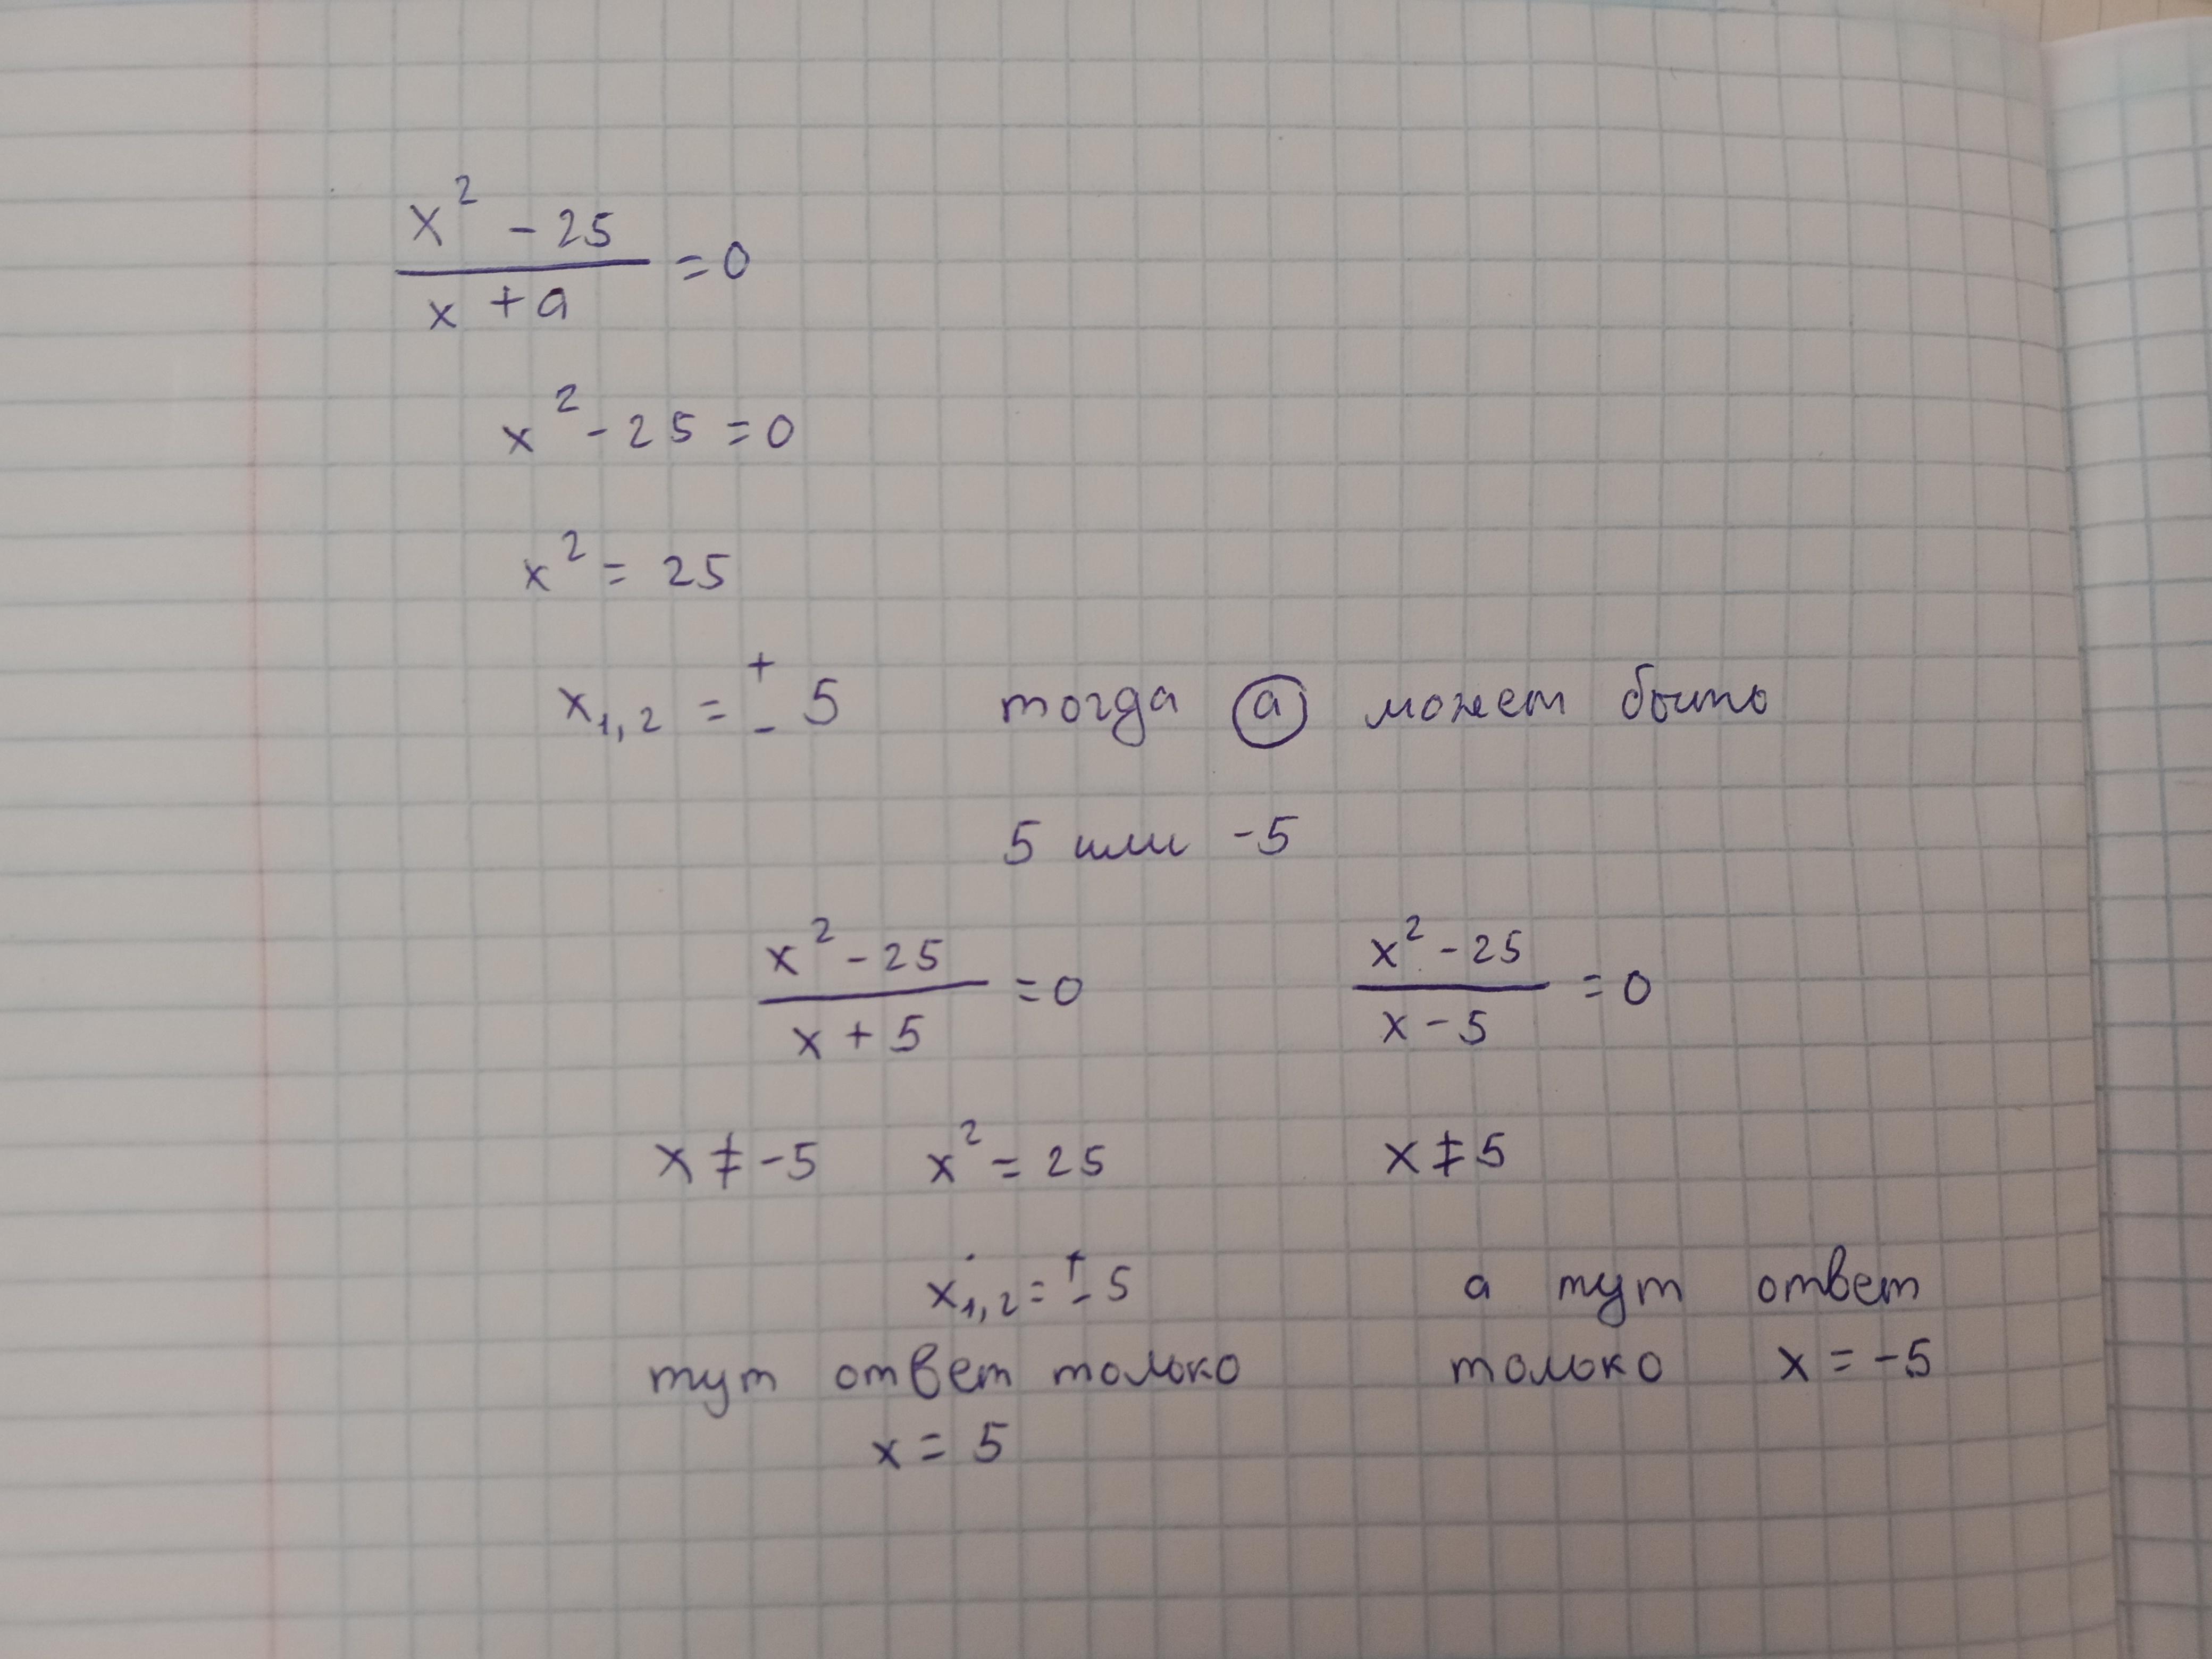 x² - 25
x + a
= 0
x² - 25 = 0
x² = 25
x₁,₂ = ± 5 тогда a может быть
5 или -5
x² - 25
x + 5
= 0
x² - 25
x - 5
= 0
x ≠ -5 x² = 25 x ≠ 5
x₁,₂ = ± 5
тут ответ только
x = 5
а тут ответ
только x = -5